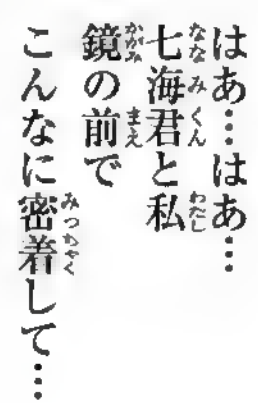 はあ…はあ…
七海君と私
鏡の前で
こんなに密着して…